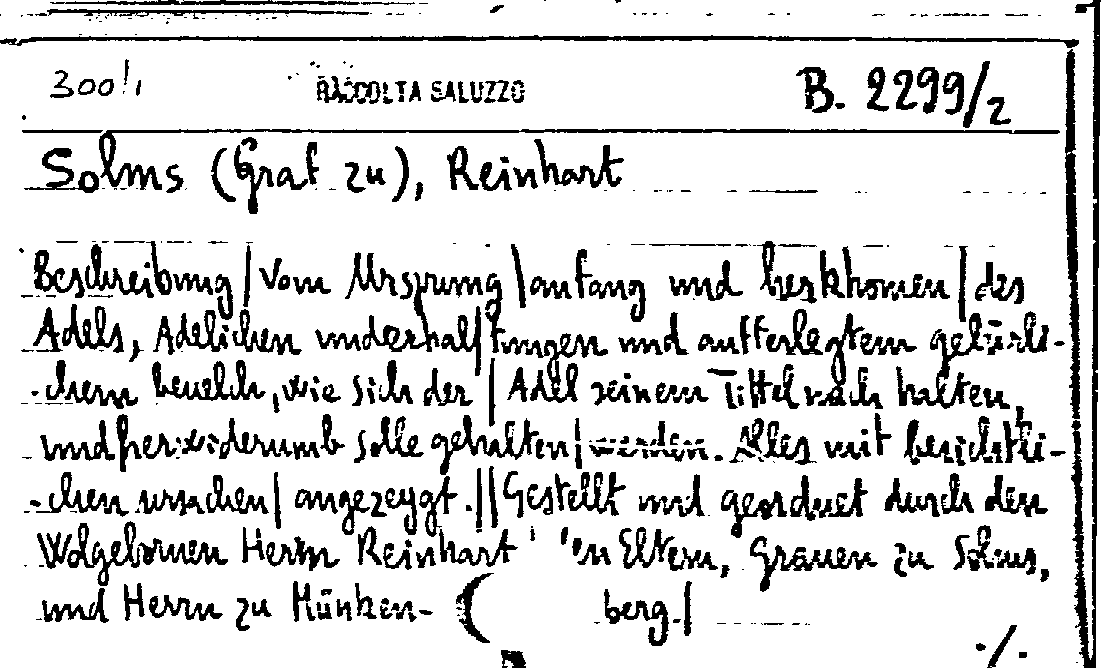 300!1 RACCOLTA SALUZZO B. 2299/2
Solms (Graf zu), Reinhart
Beschreibung | Vom Ursprung | anfang und herkhomen | des
Adels, Adelichen underhal | tungen und aufferlegtem gebürli-
-chem beuelch, wie sich der | Adel seinem Tittel nach halten,
und herwiderumb solle gehalten | werden. Alles mit berichtli-
-chen ursachen | angezeygt. || Gestellt und geordnet durch den
Wolgebornen Herrn Reinhart Eltern, Grauen zu Solms,
und Herrn zu Münzen- berg. |
./.